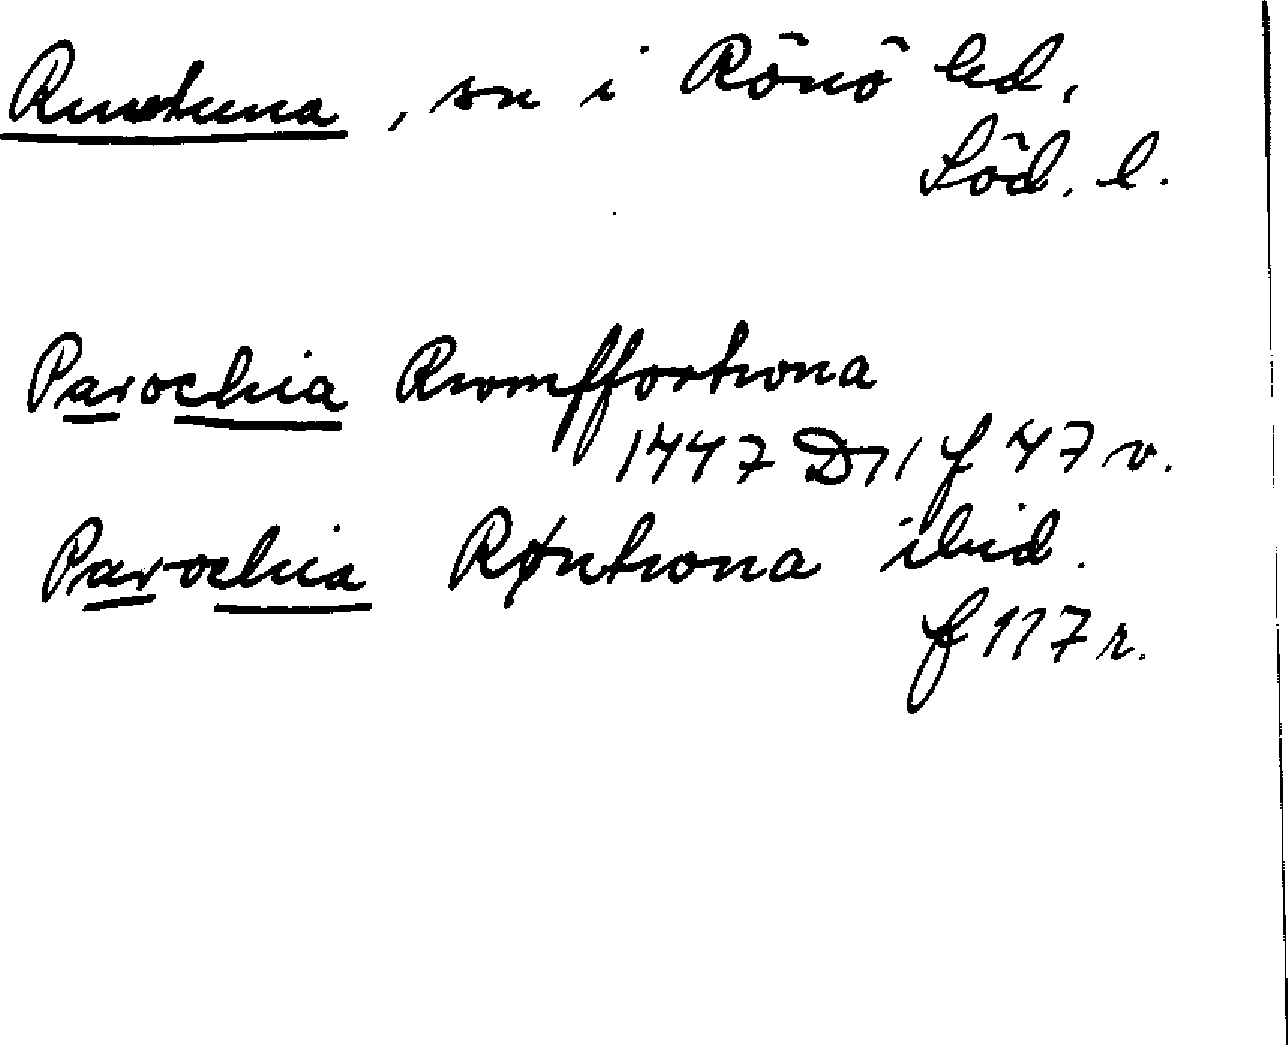 Runtuna, sn i Rönö hd,
Söd. l.
Parochia Rwmffortwna
1447 D 11 f 47 v.
Parochia Røntwna ibid.
f 117 r.